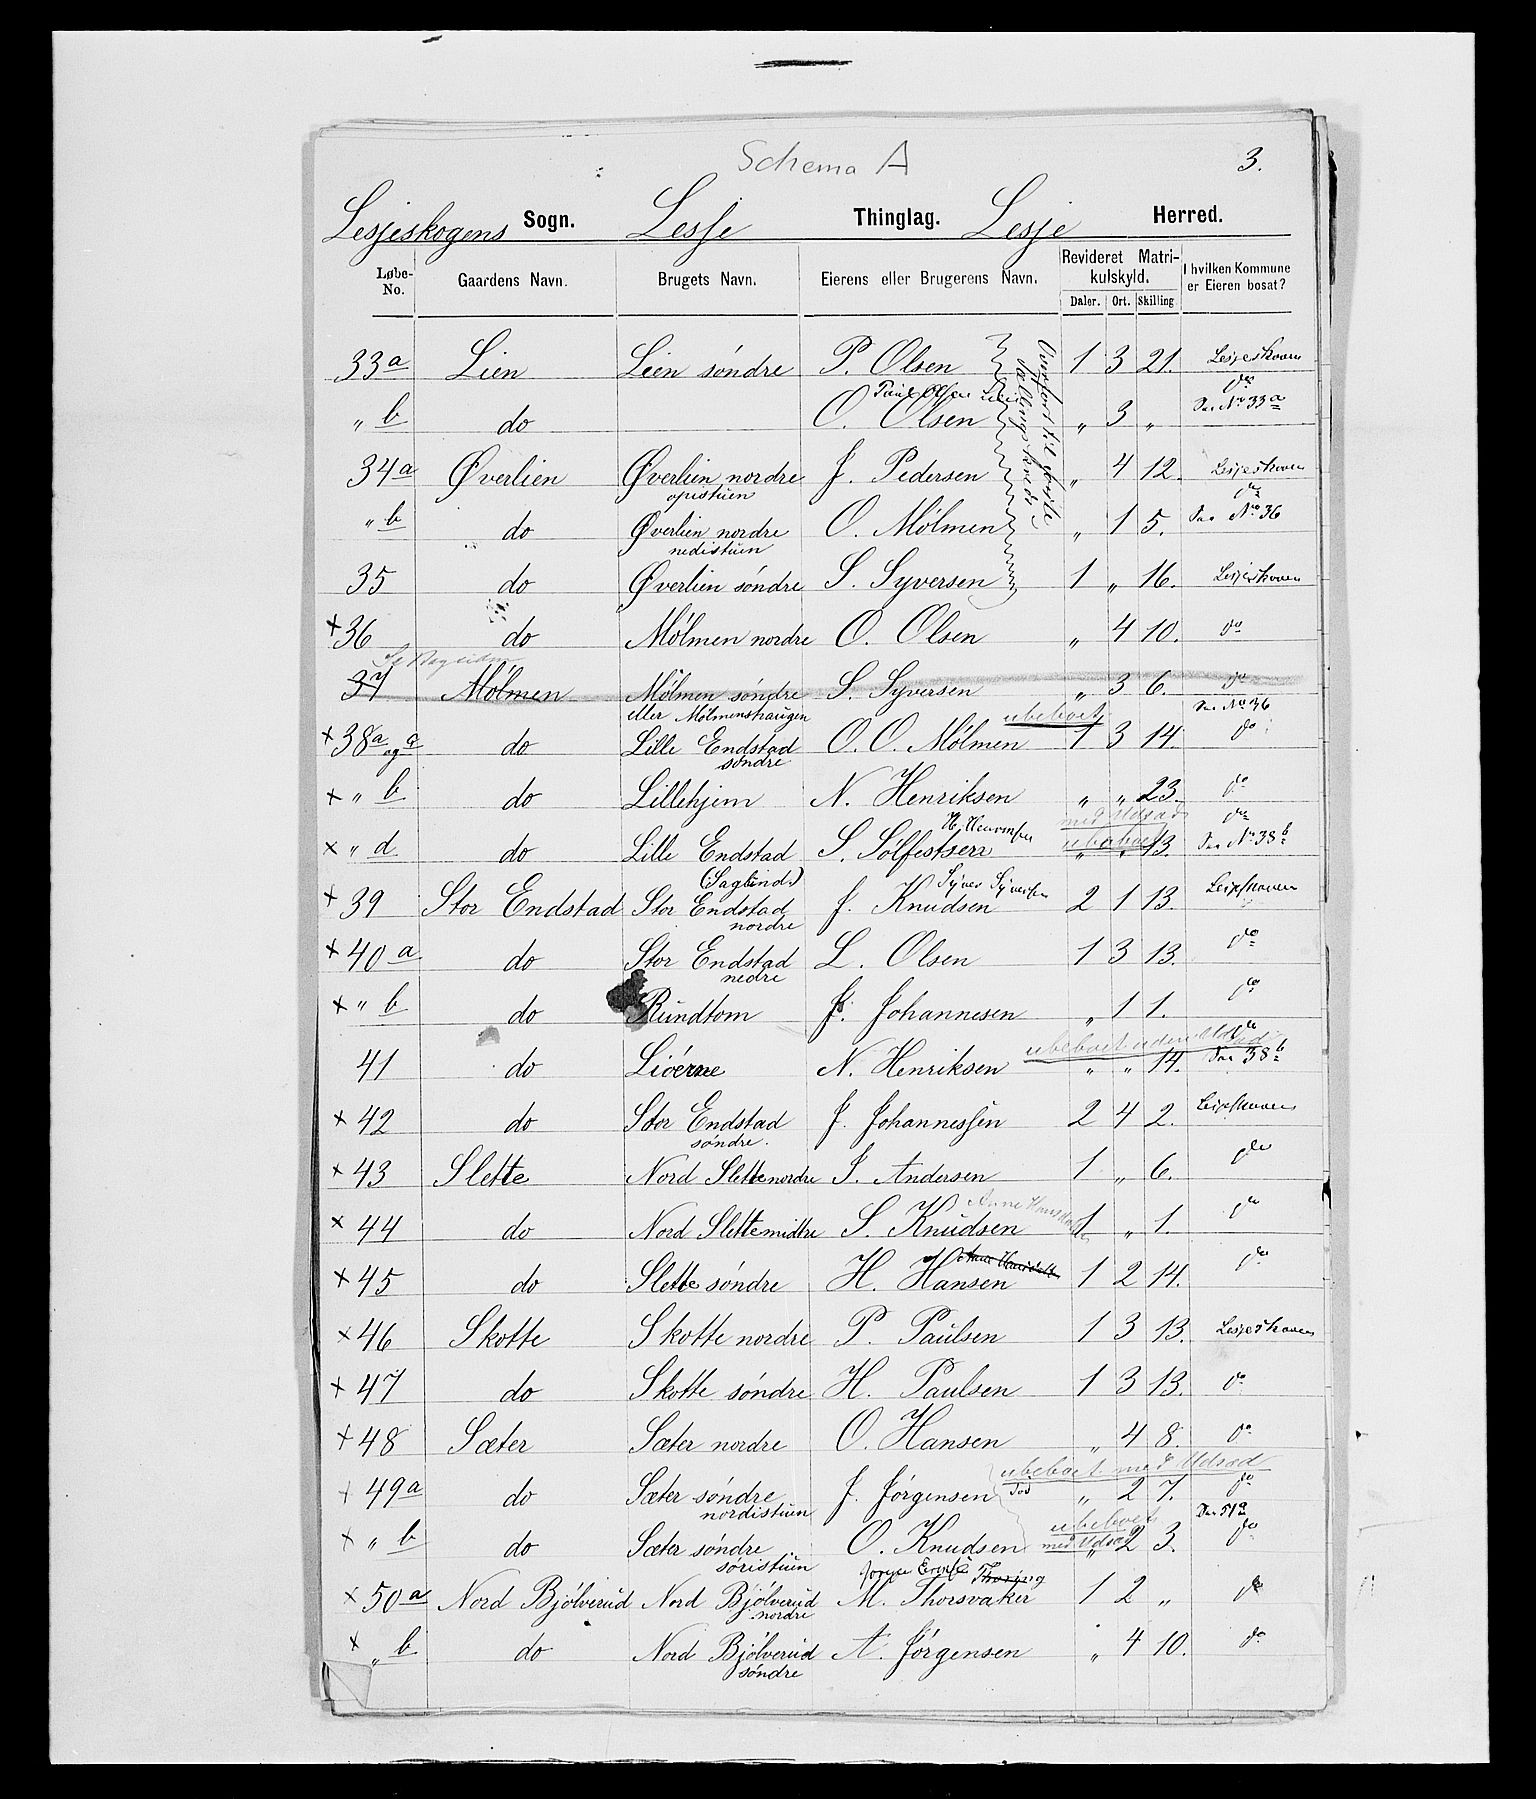 Schema A
3.
Lesjeskogens Sogn. Lesje Thinglag. Lesje Herred.
Løbe-No. Gaardens Navn. Brugets Navn. Eierens eller Brugerens Navn. Revideret Matrikulskyld. Daler. Ort. Skilling I hvilken Kommune er Eieren bosat?
33a Lien Lien söndre P. Olsen 1 3 21. Lesjeskoven
" b do O. Olsen " 3 " do See No 33a
34a Øverlien Øverlien nordre opistuen J. Pedersen " 4 12. Lesjeskoven
" b do Øverlien nordre nedistuen O. Mölmen " 1 5. do See No 36
35 do Øverlien söndre S. Syversen 1 " 16. Lesjeskoven
x 36 do Mölmen nordre O. Olsen " 4 10. do
37 Mölmen Mölmen söndre eller Mölmenshaugen S. Syversen " 3 6. do
x 38a og c do Lille Endstad söndre O. O. Mölmen ubeboet 1 3 14. See No 36 do
x " b do Lillehjem N. Henriksen " " 23. do
x " d do Lille Endstad (Saglind) S. Sölfestsen med Udsæd ubeboet " " 13. do See No 38b
x 39 Stor Endstad Stor Endstad nordre J. Knudsen Syver Syversen 2 1 13. Lesjeskoven
x 40a do Stor Endstad nedre L. Olsen 1 3 13. do
x " b do Rundtom J. Johannesen " 1 1. do
41 do Liöerne N. Henriksen ubeboet uden Udsæd " " 14. do See 38b
x 42 do Stor Endstad söndre. J. Johannessen 2 4 2. Lesjeskoven
x 43 Slette Nord Slette nordre I. Andersen 1 " 6. do
x 44 do Nord Slette midtre S. Knudsen 1 " 1. do
x 45 do Slette söndre H. Hansen 1 2 14. do
x 46 Skotte Skotte nordre P. Paulsen 1 3 13. Lesjeskoven
x 47 do Skotte söndre H. Paulsen 1 3 13. do
x 48 Sæter Sæter nordre O. Hansen " 4 8. do
x 49a do Sæter söndre nordistuen J. Jörgensen ubeboet med Udsæd " 2 7. do
x " b do Sæter söndre söristuen O. Knudsen ubeboet med Udsæd " 2 3. See 51a do
x 50a Nord Bjölverud Nord Bjölverud nordre M. Thorsvaker 1 2 " do
x " b do Nord Bjölverud söndre A. Jörgensen " 4 10. do